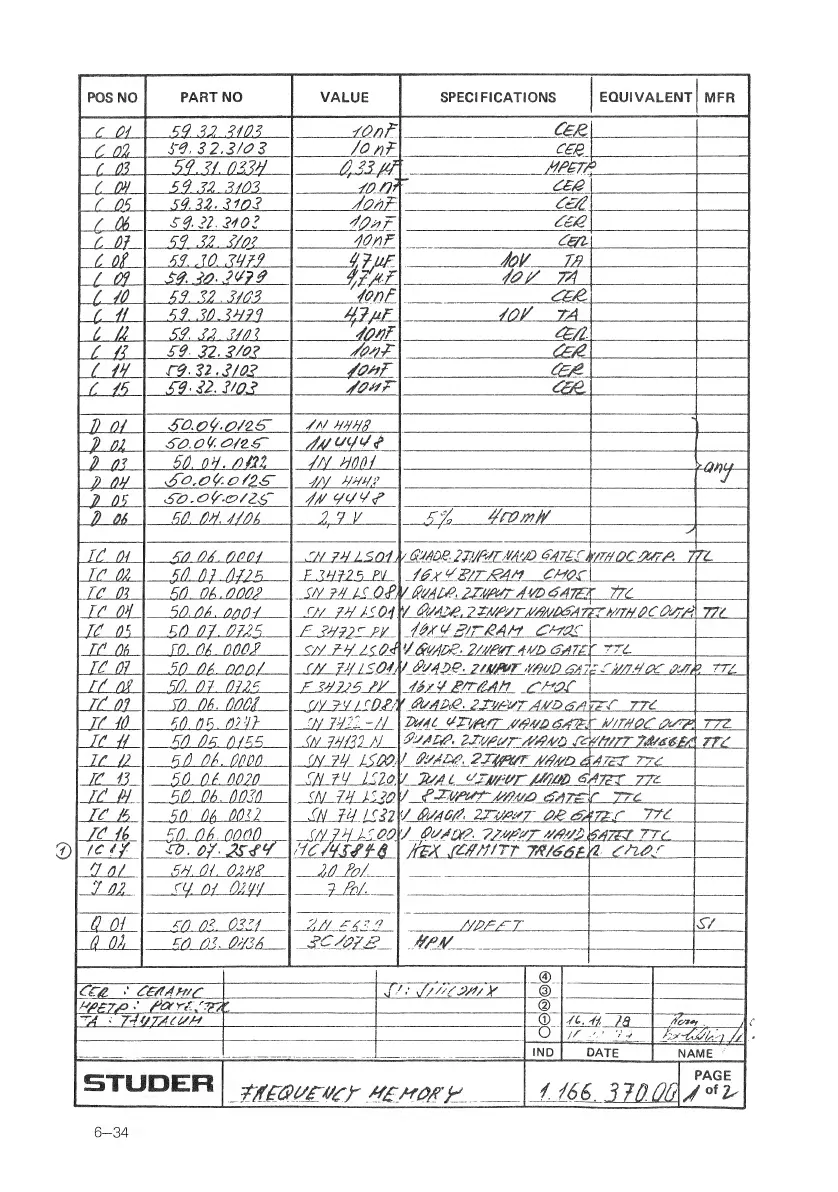 POS NO PART NO VALUE SPECIFICATIONS EQUIVALENT MFR
C 01 59.32.3103 10nF CER
C 02 59.32.3103 10nF CER
C 03 59.31.0334 0,33µF MPETP
C 04 59.32.3103 10nF CER
C 05 59.32.3103 10nF CER
C 06 59.32.3103 10nF CER
C 07 59.32.3103 10nF CER
C 08 59.30.3479 4,7µF 10V TA
C 09 59.30.3479 4,7µF 10V TA
C 10 59.32.3103 10nF CER
C 11 59.30.3479 4,7µF 10V TA
C 12 59.32.3103 10nF CER
C 13 59.32.3103 10nF CER
C 14 59.32.3103 10nF CER
C 15 59.32.3103 10nF CER
D 01 50.04.0125 1N 4448
D 02 50.04.0125 1N 4448
D 03 50.04.0122 1N 4001 any
D 04 50.04.0125 1N 4448
D 05 50.04.0125 1N 4448
D 06 50.04.1106 2,7 V 5% 400mW
IC 01 50.06.0001 SN 74 LS01 N QUADR. 2INPUT NAND GATES WITH OC OUTP. TTL
IC 02 50.07.0725 F 34725 PV 16x4 BIT RAM CMOS
IC 03 50.06.0002 SN 74 LS 08 N QUADR. 2INPUT AND GATES TTL
IC 04 50.06.0001 SN 74 LS01 N QUADR. 2INPUT NAND GATES WITH OC OUTP. TTL
IC 05 50.07.0725 F 34725 PV 16x4 BIT RAM CMOS
IC 06 50.06.0008 SN 74 LS08 N QUADR. 2INPUT AND GATES TTL
IC 07 50.06.0001 SN 74 LS01 N QUADR. 2INPUT NAND GATES WITH OC OUTP. TTL
IC 08 50.07.0725 F 34725 PV 16x4 BIT RAM CMOS
IC 09 50.06.0008 SN 74 LS08 N QUADR. 2INPUT AND GATES TTL
IC 10 50.05.0247 SN 7422-N DUAL 4INPUT NAND GATES WITH OC OUTP. TTL
IC 11 50.05.0155 SN 74132 N QUADR. 2INPUT NAND SCHMITT TRIGGER TTL
IC 12 50.06.0000 SN 74 LS00 N QUADR. 2INPUT NAND GATES TTL
IC 13 50.06.0020 SN 74 LS20 N DUAL 4INPUT NAND GATES TTL
IC 14 50.06.0030 SN 74 LS30 N 8INPUT NAND GATES TTL
IC 15 50.06.0032 SN 74 LS32 N QUADR. 2INPUT OR GATES TTL
IC 16 50.06.0000 SN 74 LS00 N QUADR. 2INPUT NAND GATES TTL
① IC 17 50.07.2584 MC14584B HEX SCHMITT TRIGGER CMOS
J 01 54.01.0248 20 Pol.
J 02 54.01.0241 7 Pol.
Q 01 50.03.0331 2N 5639 NDFET SI
Q 02 50.03.0436 BC107B NPN
④
CER : CERAMIC SI: Siliconix ③
MPETP : POLYESTER ②
TA : TANTALUM ① 16.11.78
○
IND DATE NAME
STUDER FREQUENCY MEMORY 1.166.370.00 PAGE 1 of 2
6–34